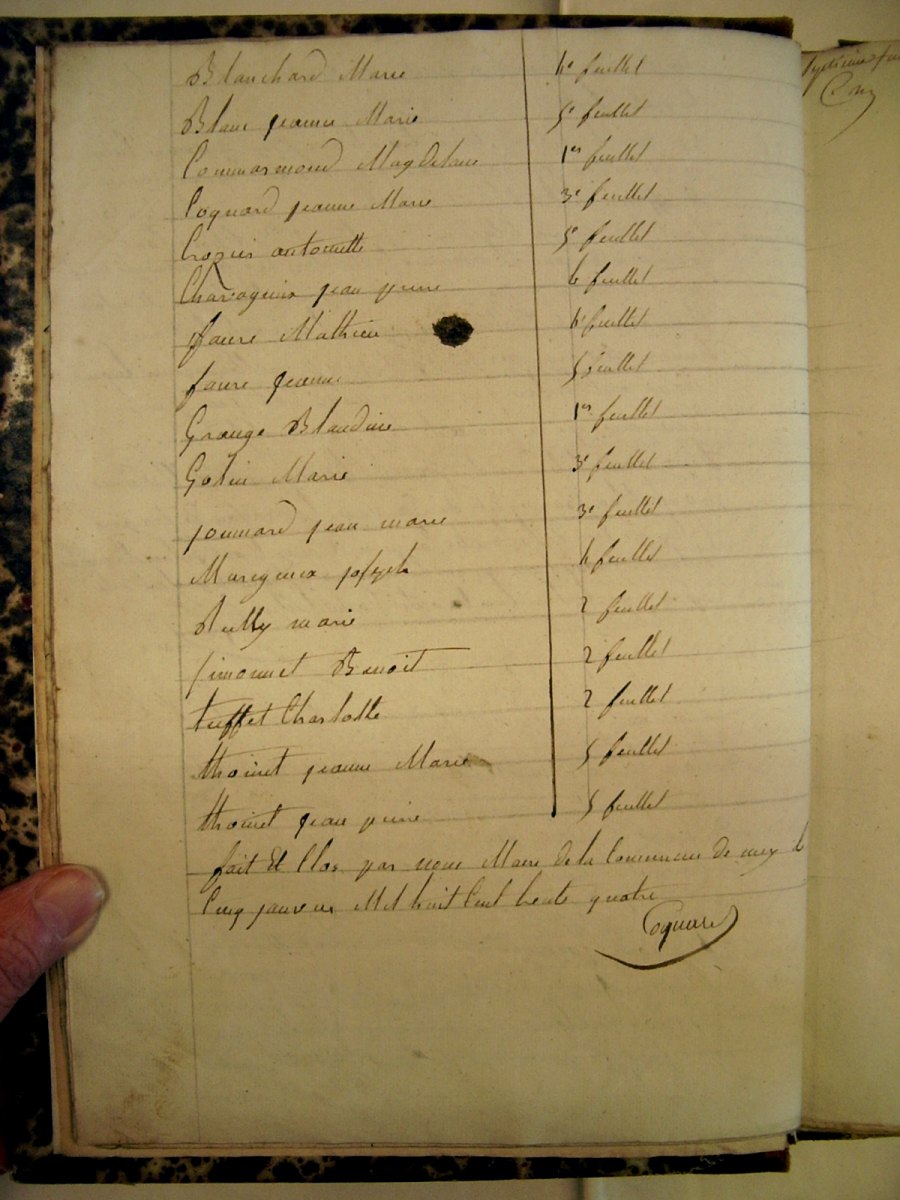 Blanchard Marie 4e feuillet
Blanc jeanne Marie 5e feuillet
Commarmond Magdelaine 1er feuillet
Coquard jeanne Marie 3e feuillet
Crozier antoinette 5e feuillet
jean pierre 4e feuillet
faure Mathieu 4e feuillet
faure jeanne 5 feuillet
Grange Blandine 1er feuillet
Marie 3e feuillet
jean marie 3e feuillet
joseph 4 feuillet
marie 2 feuillet
Simonnet Benoit 2 feuillet
tuffet Charlotte 2 feuillet
thoinet jeanne Marie 5 feuillet
thoinet jean pierre 5 feuillet
fait Et Clos par nous Maire de la Commune de meys le
Cinq janvier Mil huit Cent trente quatre
Coquard